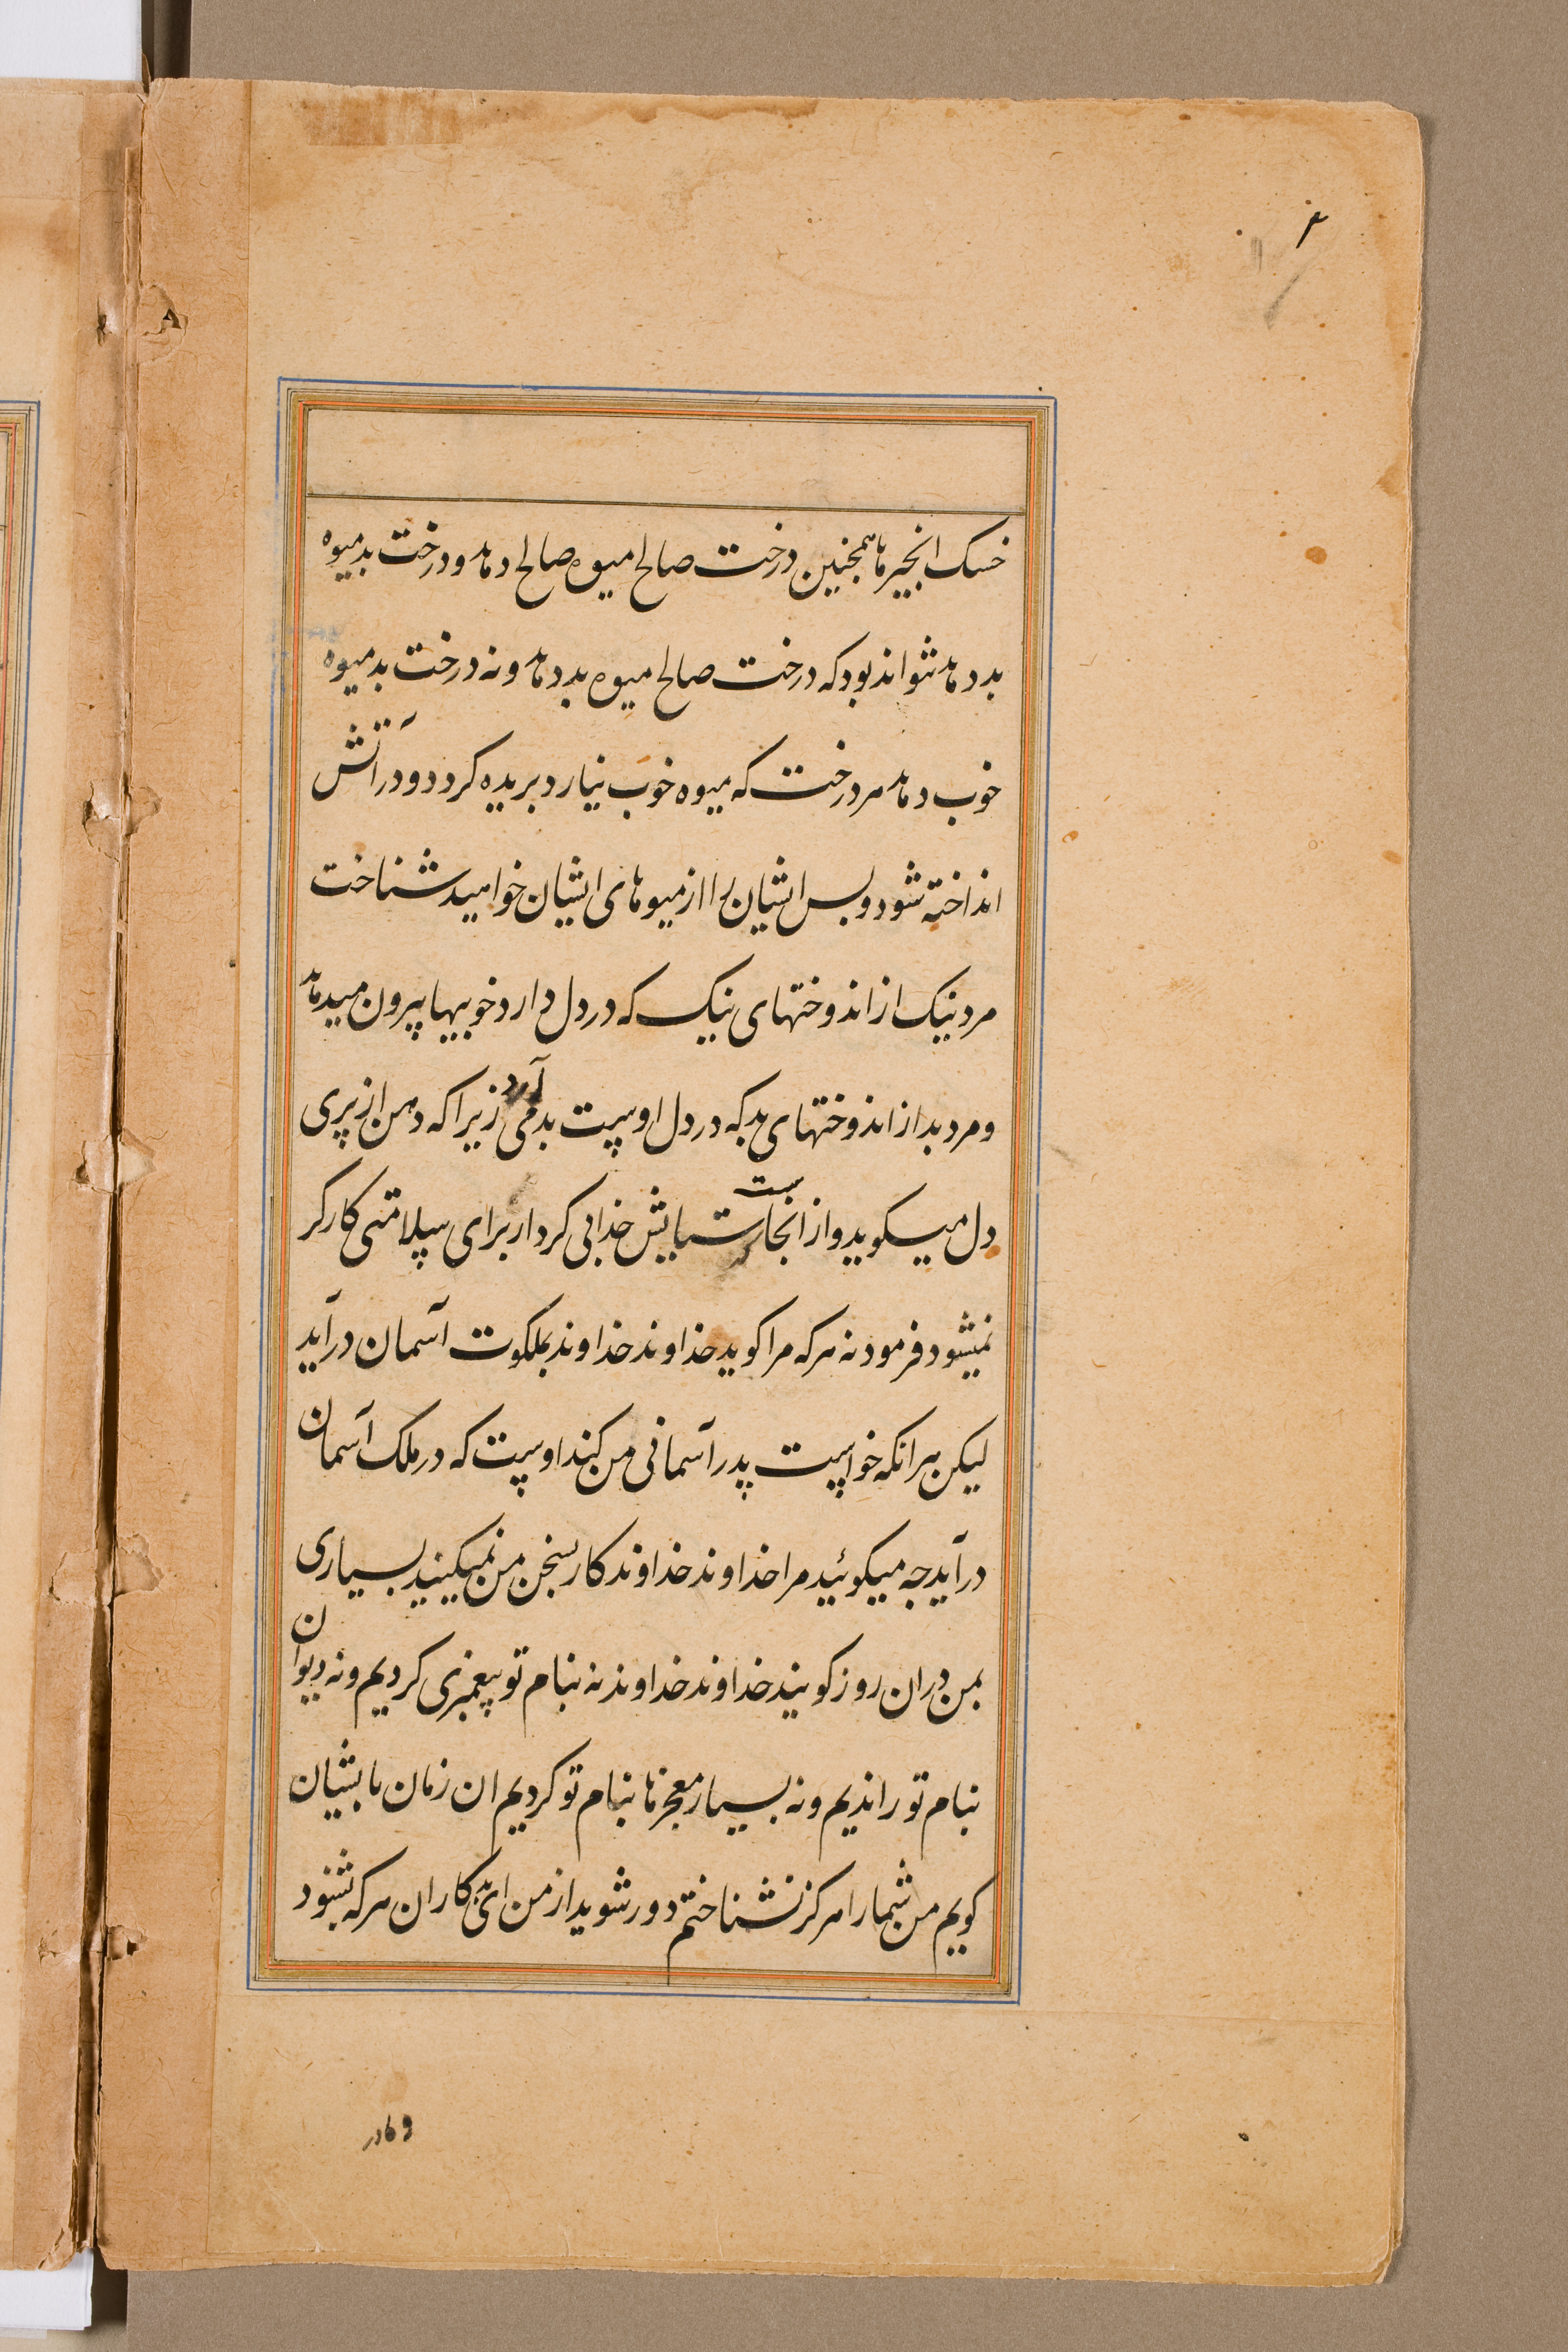 خسک انجیرها همچنین درخت صالح میوه صالح دهد و درخت بد میوه
بد دهد نتواند بود که درخت صالح میوه بد دهد و نه درخت بد میوه
خوب دهد هر درخت که میوه خوب نیارد بریده کردد و در آتش
انداخته شود و پس ایشان را از میوهای ایشان خواهید شناخت
مرد نیک از اندوختهای نیک که در دل دارد خوبیها بیرون میدهد
و مرد بد از اندوختهای بد که در دل اوست بد می آرد زیرا که دهن از پری
دل میکوید و از انجاست ستایش خدایی کردار برای سلامتی کارکر
نمیشود فرمود نه هر که مرا کوید خداوند خداوند بملکوت آسمان درآید
لیکن هر انکه خواست پدر آسمانی من کند اوست که در ملک آسمان
درآید چه میکوئید مرا خداوند خداوند کار سخن من نمیکنید بسیاری
بمن دران روز کویند خداوند خداوند نه بنام تو پیغمبری کردیم و نه دیوان
بنام تو راندیم و نه بسیار معجزها بنام تو کردیم ان زمان بایشان
کویم من شما را هرکز نشناختم دور شوید از من ای بدکاران هر که شنود